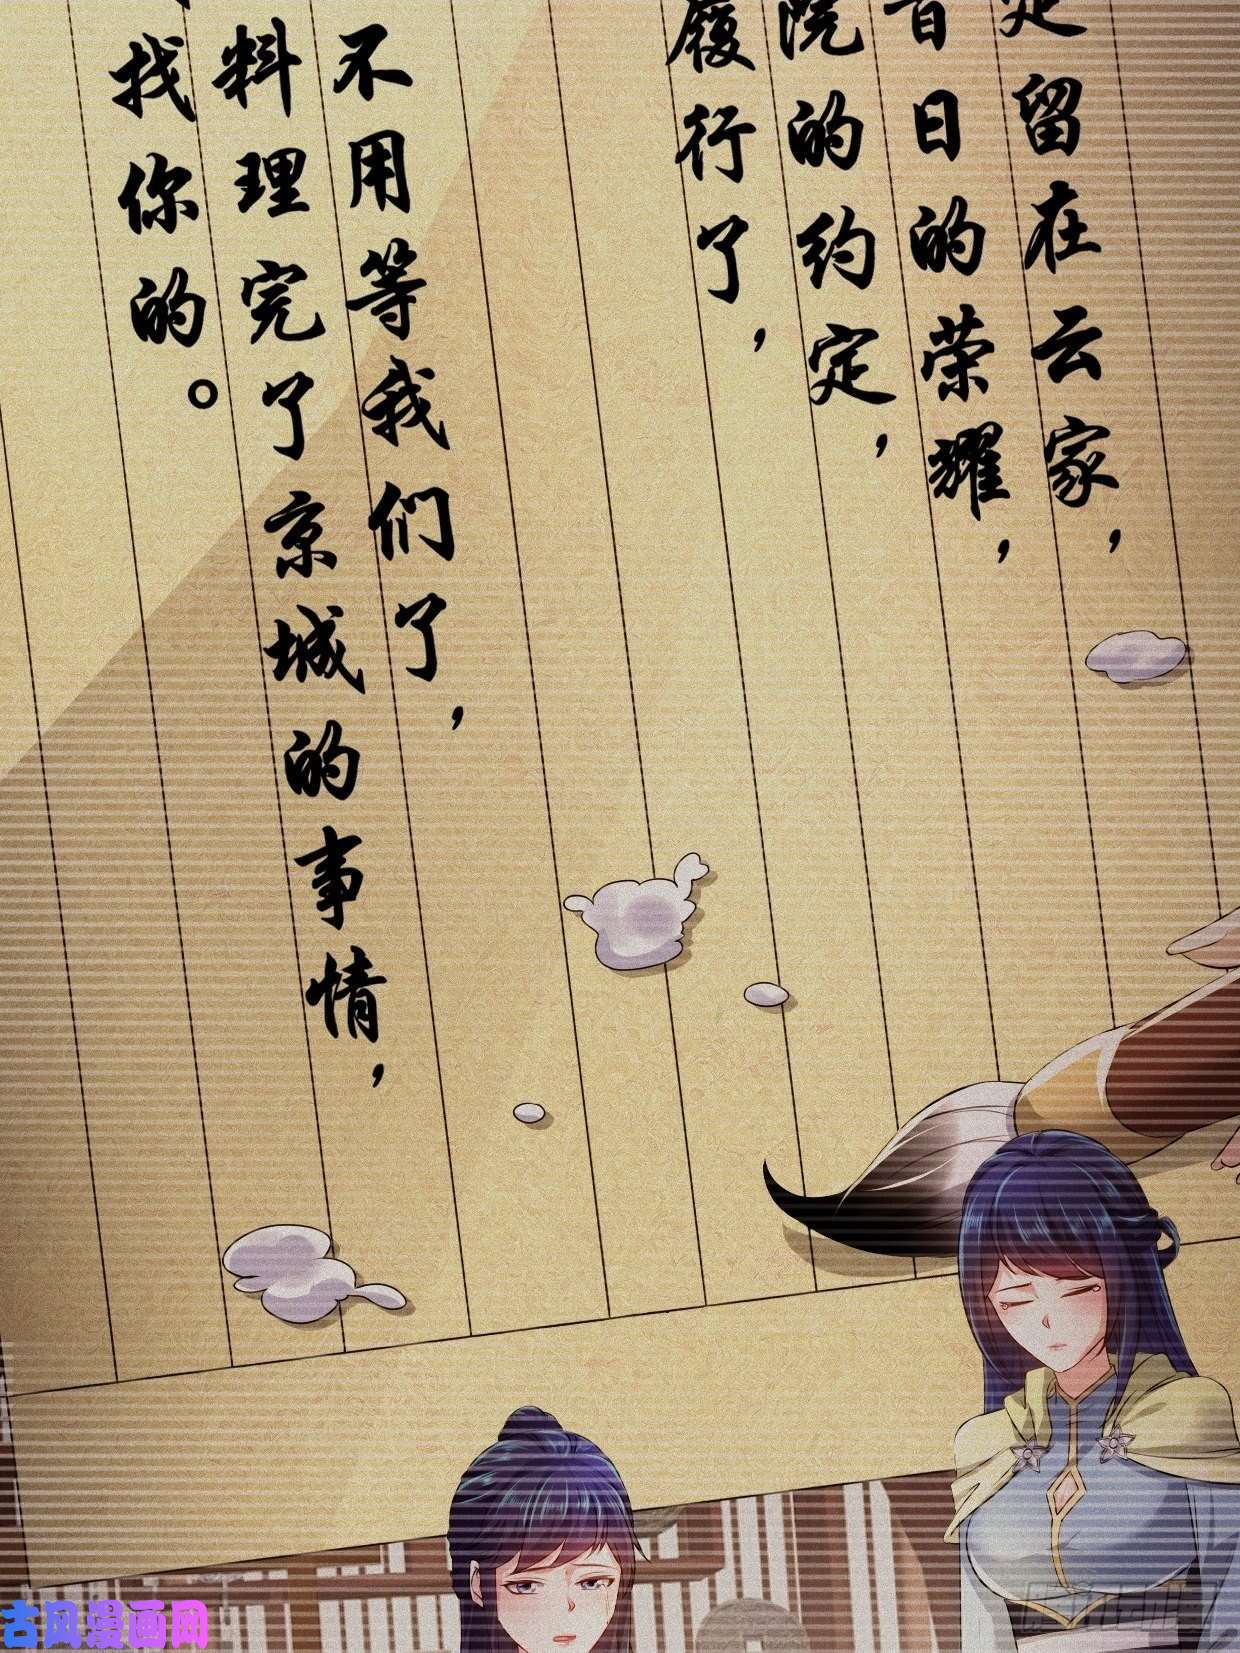 定留在云家，
昔日的荣耀，
院的约定，
履行了，
不用等我们了，
料理完了京城的事情，
找你的。
古风漫画网